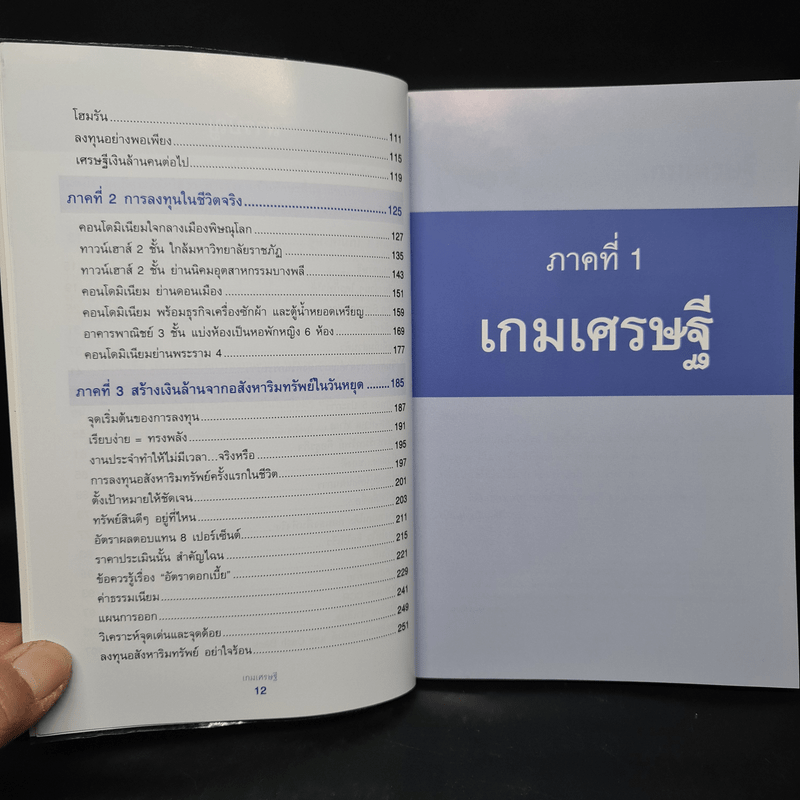 โฮมรัน 111
ลงทุนอย่างพอเพียง 115
เศรษฐีเงินล้านคนต่อไป 119
ภาคที่ 2 การลงทุนในชีวิตจริง 125
คอนโดมิเนียมใจกลางเมืองพิษณุโลก 127
ทาวน์เฮาส์ 2 ชั้น ใกล้มหาวิทยาลัยราชภัฏ 135
ทาวน์เฮาส์ 2 ชั้น ย่านนิคมอุตสาหกรรมบางพลี 143
คอนโดมิเนียม ย่านดอนเมือง 151
คอนโดมิเนียม พร้อมธุรกิจเครื่องซักผ้า และตู้น้ำหยอดเหรียญ 159
อาคารพาณิชย์ 3 ชั้น แบ่งห้องเป็นหอพักหญิง 6 ห้อง 169
คอนโดมิเนียมย่านพระราม 4 177
ภาคที่ 3 สร้างเงินล้านจากอสังหาริมทรัพย์ในวันหยุด 185
จุดเริ่มต้นของการลงทุน 187
เรียบง่าย = ทรงพลัง 191
งานประจำทำให้ไม่มีเวลา...จริงหรือ 195
การลงทุนอสังหาริมทรัพย์ครั้งแรกในชีวิต 197
ตั้งเป้าหมายให้ชัดเจน 201
ทรัพย์สินดีๆ อยู่ที่ไหน 203
อัตราผลตอบแทน 8 เปอร์เซ็นต์ 211
ราคาประเมินนั้น สำคัญไฉน 215
ข้อควรรู้เรื่อง "อัตราดอกเบี้ย" 221
ค่าธรรมเนียม 229
แผนการออก 241
วิเคราะห์จุดเด่นและจุดด้อย 249
ลงทุนอสังหาริมทรัพย์ อย่าใจร้อน 251
เกมเศรษฐี
12
ภาคที่ 1
เกมเศรษฐี